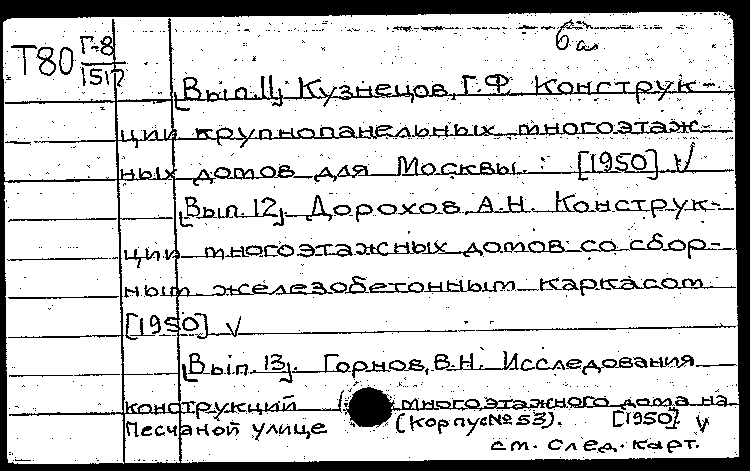 6а
Т80 Г-8
1517
[Вып. 11] Кузнецов, Г.Ф. Конструк-
ции крупнопанельных многоэтаж-
ных домов для Москвы. : [1950] V
[Вып. 12]. Дорохов, А.Н. Конструк-
ции многоэтажных домов со сбор-
ным железобетонным каркасом
[1950] V
[Вып. 13]. Горнов, В.Н. Исследования
конструкций многоэтажного дома на
Песчаной улице (корпус №53). [1950]. V
см. след. карт.